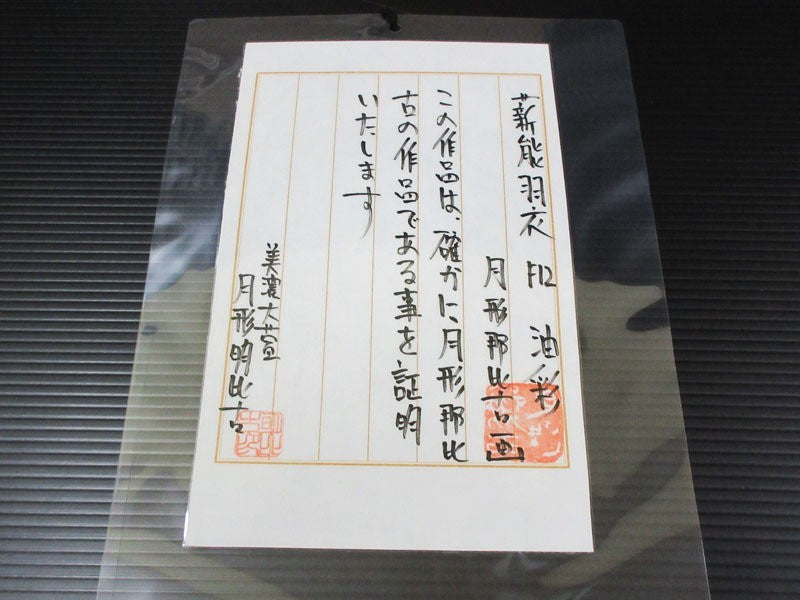 薪能羽衣 F12 油彩
月形那比古画
この作品は、確かに月形那比
古の作品である事を証明
いたします
美濃大萱
月形明比古